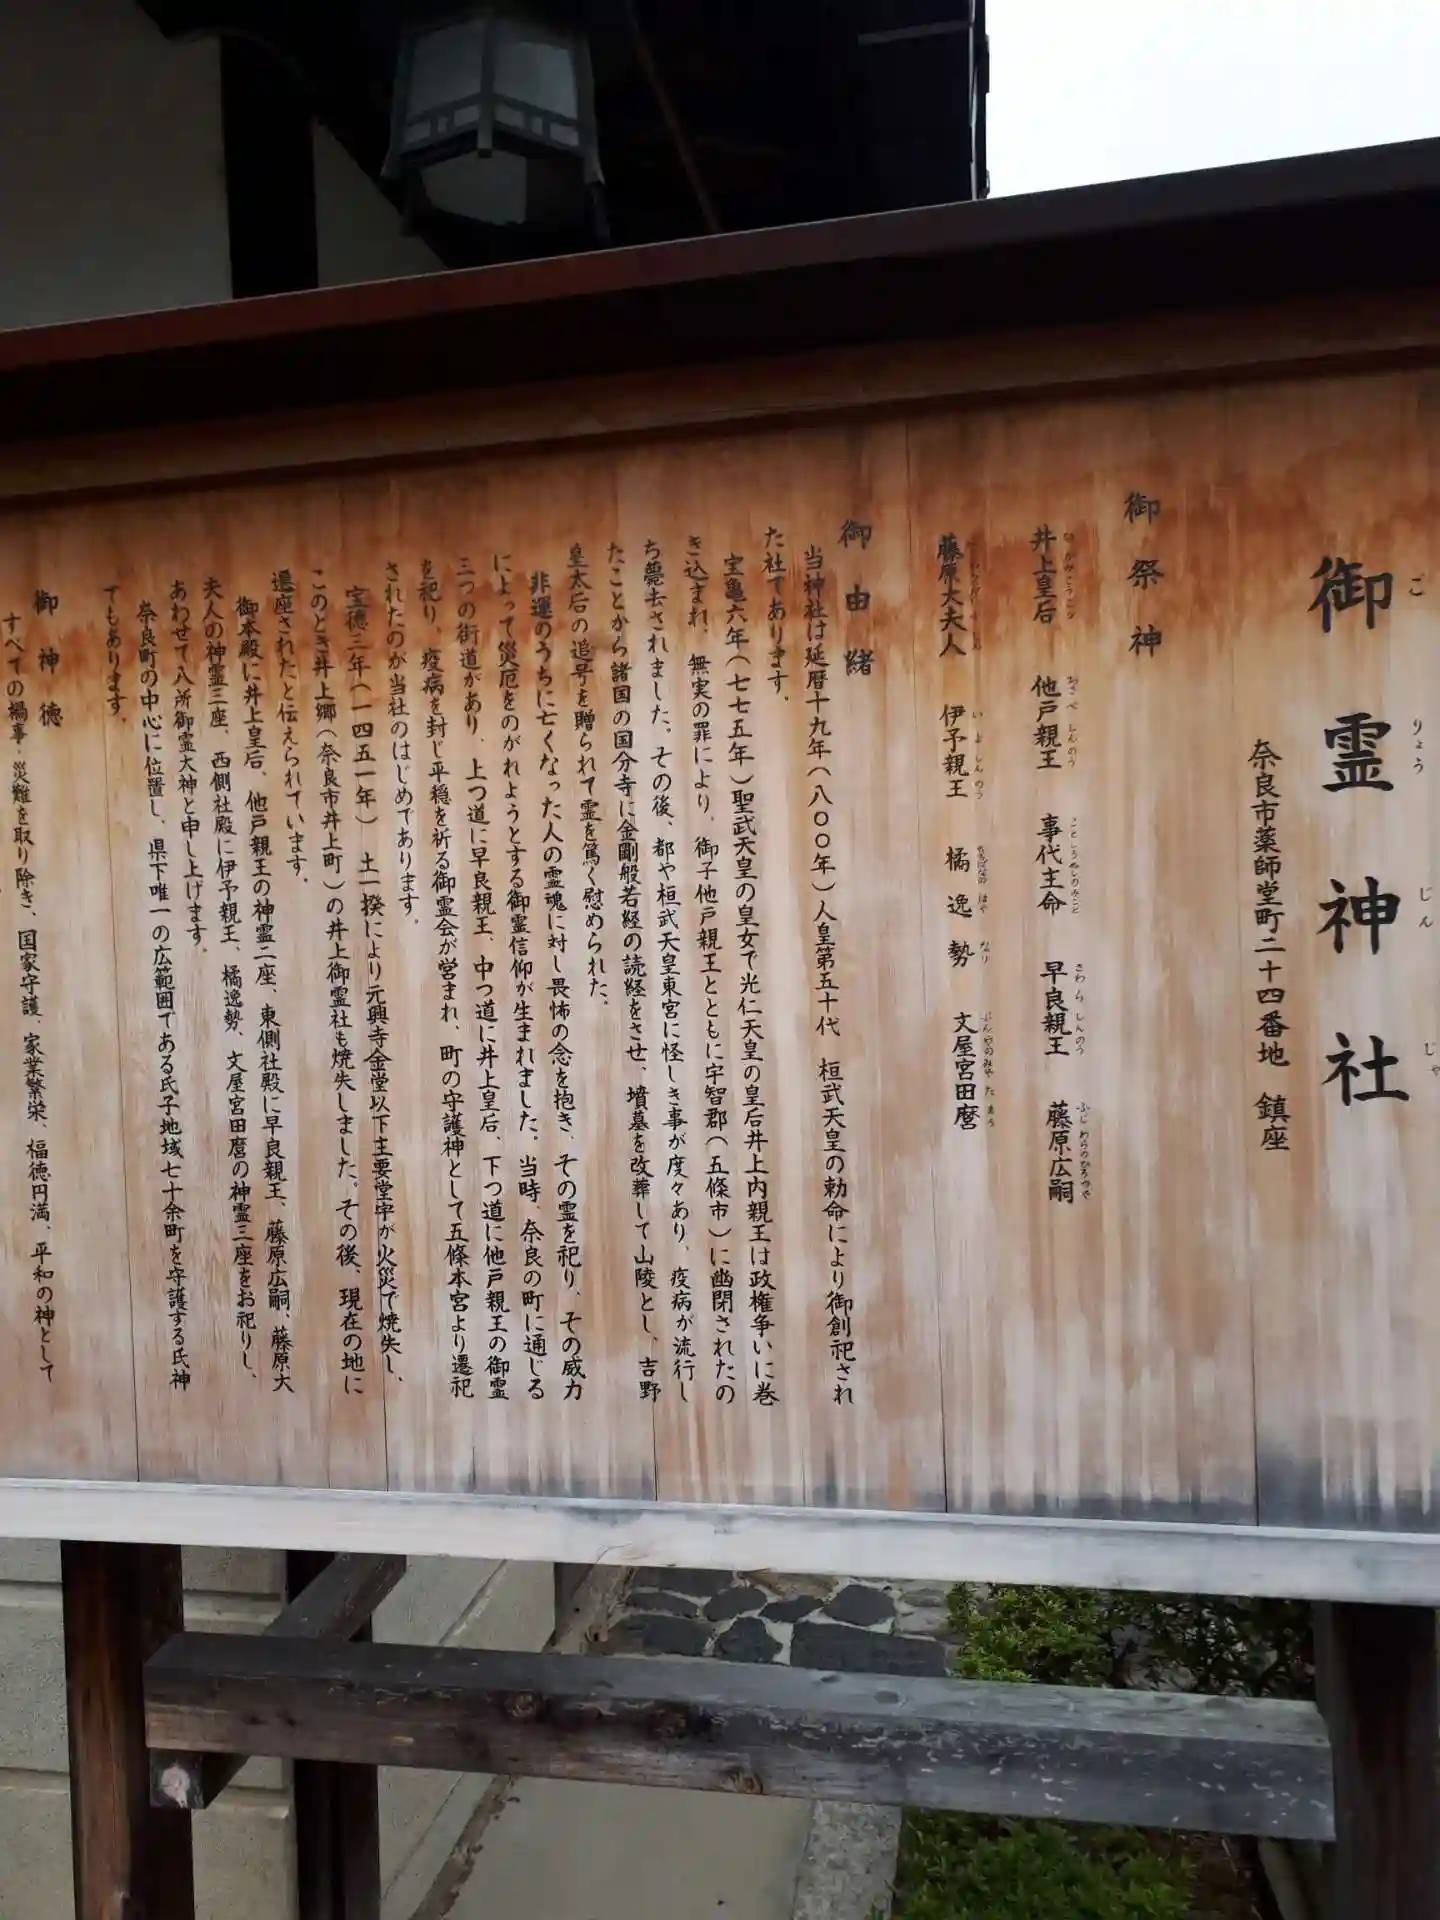 御霊神社
ごりょうじんじゃ
奈良市薬師堂町二十四番地 鎮座
御祭神
井上皇后 他戸親王 事代主命 早良親王 藤原広嗣
藤原大夫人 伊予親王 橘逸勢 文屋宮田麿
御由緒
当神社は延暦十九年(八〇〇年)人皇第五十代 桓武天皇の勅命により御創祀され
た社であります。
宝亀六年(七七五年)聖武天皇の皇女で光仁天皇の皇后井上内親王は政権争いに巻
き込まれ、無実の罪により、御子他戸親王とともに宇智郡(五條市)に幽閉されたの
ち薨去されました。その後、都や桓武天皇東宮に怪しき事が度々あり、疫病が流行し
たことから諸国の国分寺に金剛般若経の読経をさせ、墳墓を改葬して山陵とし、吉野
皇太后の追号を贈られて霊を篤く慰められた。
非運のうちに亡くなった人の霊魂に対し畏怖の念を抱き、その霊を祀り、その威力
によって災厄をのがれようとする御霊信仰が生まれました。当時、奈良の町に通じる
三つの街道があり、上つ道に早良親王、中つ道に井上皇后、下つ道に他戸親王の御霊
を祀り、疫病を封じ平穏を祈る御霊会が営まれ、町の守護神として五條本宮より遷祀
されたのが当社のはじめであります。
宝徳三年(一四五一年) 土一揆により元興寺金堂以下主要堂宇が火災で焼失し、
このとき井上郷(奈良市井上町)の井上御霊社も焼失しました。その後、現在の地に
遷座されたと伝えられています。
御本殿に井上皇后、他戸親王の神霊二座、東側社殿に早良親王、藤原広嗣、藤原大
夫人の神霊三座、西側社殿に伊予親王、橘逸勢、文屋宮田麿の神霊三座をお祀りし、
あわせて八所御霊大神と申し上げます。
奈良町の中心に位置し、県下唯一の広範囲である氏子地域七十余町を守護する氏神
でもあります。
御神徳
すべての禍事・災難を取り除き、国家守護、家業繁栄、福徳円満、平和の神として